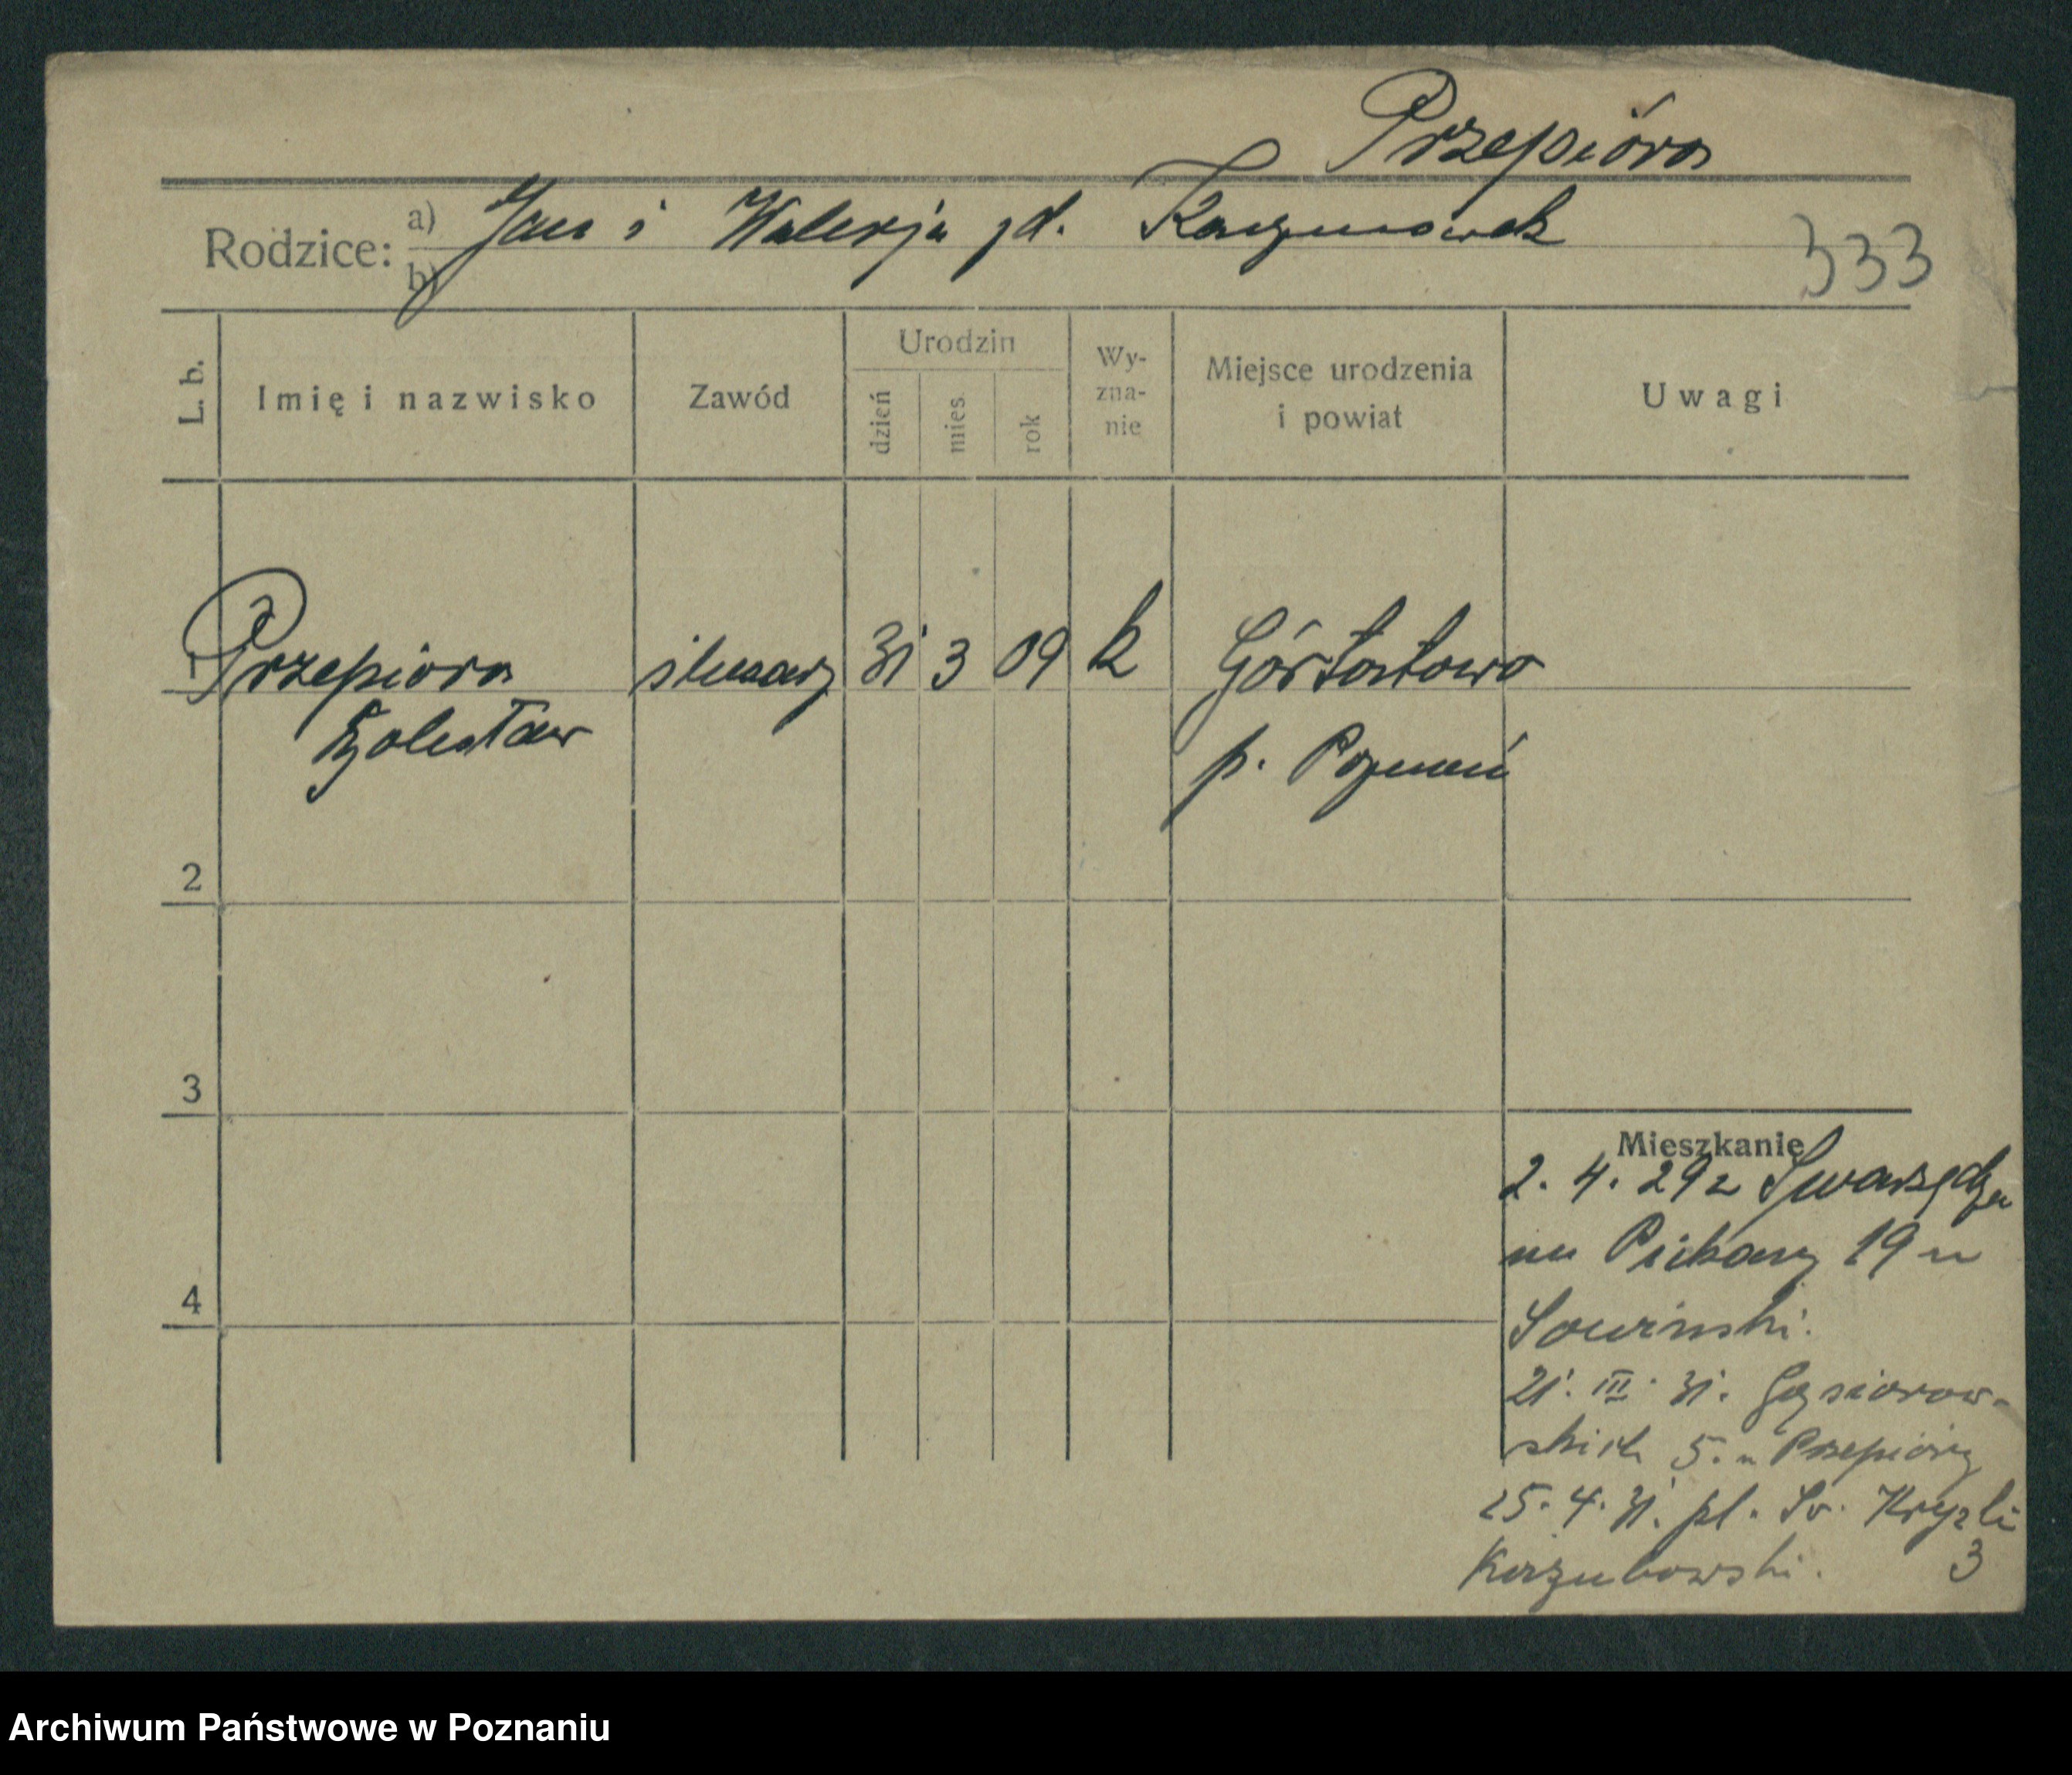 Przepióra
Rodzice: a) Jan i Walerja zd. Kaczmarek
b)
333
L. b.
Imię i nazwisko
Zawód
Urodzin
dzień
mies.
rok
Wy-
zna-
nie
Miejsce urodzenia
i powiat
Uwagi
1 Przepiora ślusarz 31 3 09 k
Bolesław
p. Poznań
2
3
4
Mieszkanie
2. 4. 29 z Swarzędza
na Piekary 19 u
Sowinski.
21. III. 31. Gąsiorow-
skich 5. u Przepióry
25. 4. 31. pl. Św. Krzyski
3
Archiwum Państwowe w Poznaniu